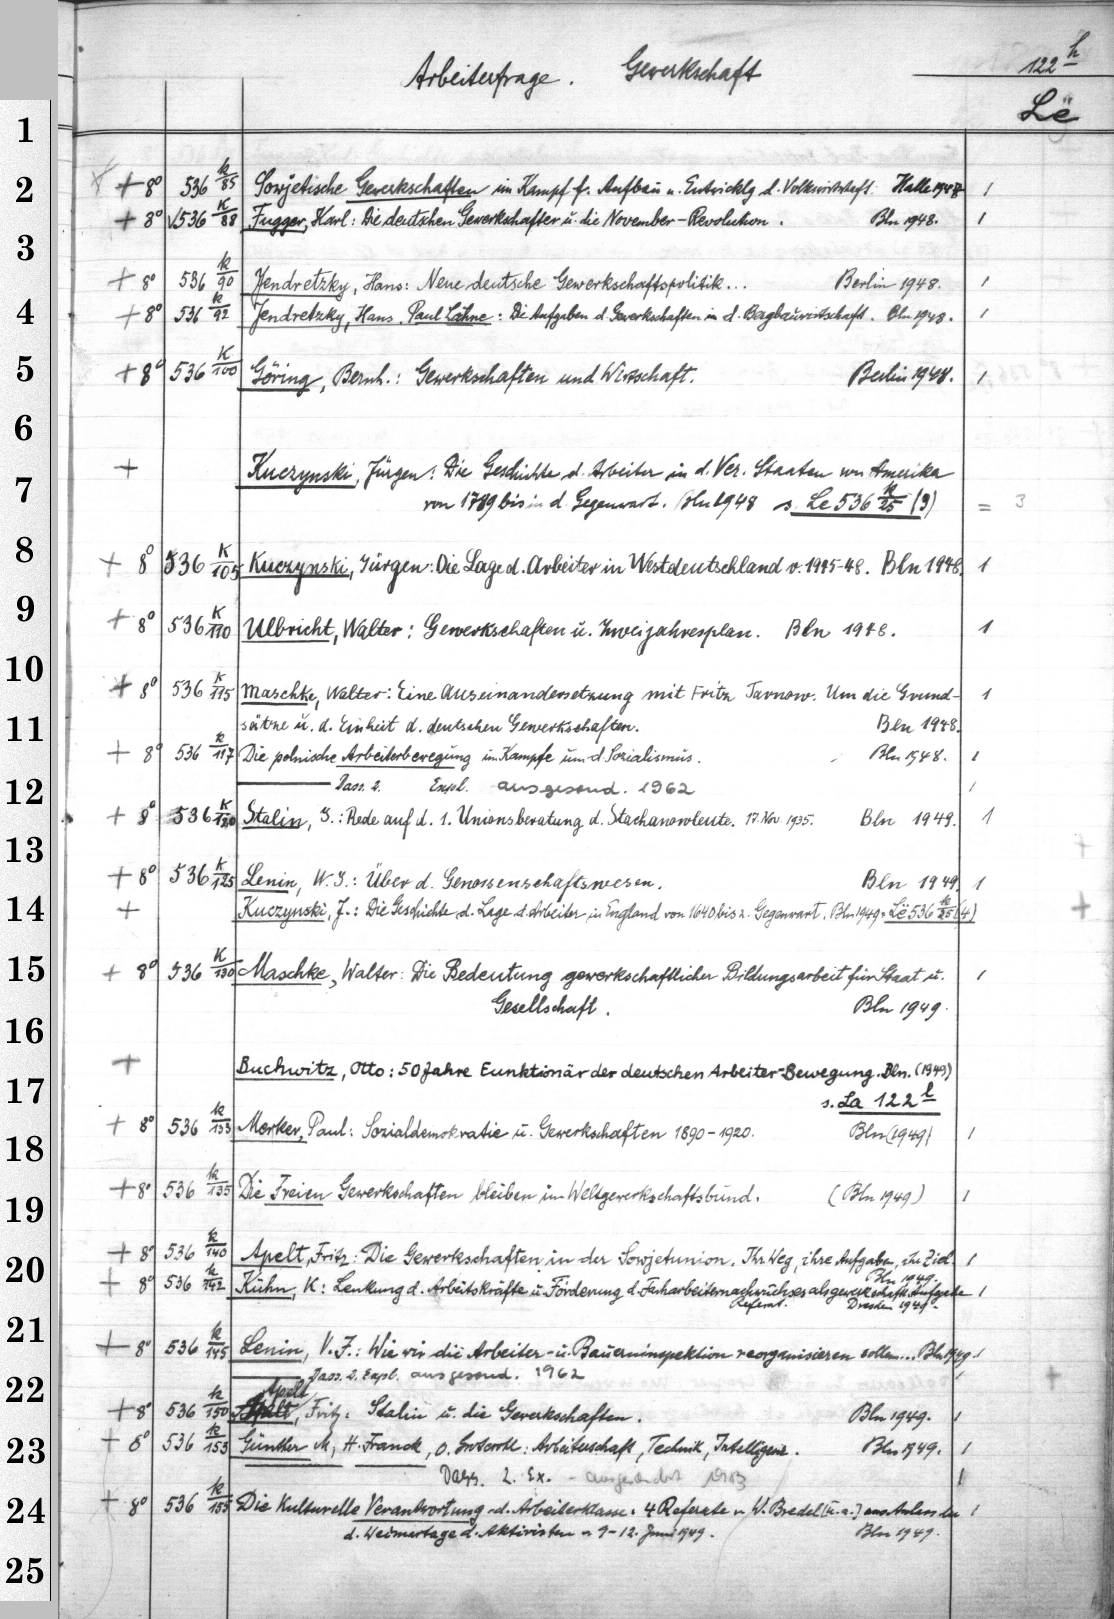 Arbeiterfrage. Gewerkschaft 122 h
Lë
1
2 + 8° 536 k/85 Sowjetische Gewerkschaften im Kampf f. Aufbau u. Entwicklg d. Volkswirtschaft. Halle 1948 1
+ 8° 536 K/88 Fugger, Karl: Die deutschen Gewerkschaften u. die November-Revolution. Bln 1948. 1
3
+ 8° 536 k/90 Jendretzky, Hans: Neue deutsche Gewerkschaftspolitik... Berlin 1948. 1
4 + 8° 536 k/92 Jendretzky, Hans, Paul Lähne: Die Aufgaben d. Gewerkschaften in d. Bagbauwirtschaft. Bln 1948. 1
5 + 8° 536 K/100 Göring, Bernh.: Gewerkschaften und Wirtschaft. Berlin 1948. 1
6
+ Kuczynski, Jürgen: Die Geschichte d. Arbeiter in d. Ver. Staaten von Amerika
7 von 1789 bis in d. Gegenwart. Bln 1948 s. Le 536 k/25 (3) = 3
8 + 8° 536 K/105 Kuczynski, Jürgen: Die Lage d. Arbeiter in Westdeutschland v. 1945-48. Bln 1948. 1
9 + 8° 536 K/110 Ulbricht, Walter: Gewerkschaften u. Zweijahresplan. Bln 1948. 1
10 + 8° 536 K/115 Maschke, Walter: Eine Auseinandersetzung mit Fritz Tarnow. Um die Grund- 1
11 sätze u. d. Einheit d. deutschen Gewerkschaften. Bln 1948.
+ 8° 536 k/117 Die polnische Arbeiterbewegung im Kampfe um d. Sozialismus. Bln 1948. 1
12 Dass. 2. Expl. ausgesond. 1962 1
+ 8° 536 K/120 Stalin, J.: Rede auf d. 1. Unionsberatung d. Stachanowleute. 17. Nov. 1935. Bln 1949. 1
13 +
+ 8° 536 K/125 Lenin, W. J.: Über d. Genossenschaftswesen. Bln 1949. 1
14 + Kuczynski, J.: Die Geschichte d. Lage d. Arbeiter in England von 1640 bis z. Gegenwart. Bln 1949 = Lë 536 k/25 (4) +
15 + 8° 536 K/130 Maschke, Walter: Die Bedeutung gewerkschaftlicher Bildungsarbeit für Staat u. 1
Gesellschaft. Bln 1949.
16
+ Buchwitz, Otto: 50 Jahre Funktionär der deutschen Arbeiter-Bewegung. Bln. (1949)
17 s. La 122 l
+ 8° 536 k/133 Merker, Paul: Sozialdemokratie u. Gewerkschaften 1890-1920. Bln (1949) 1
18
19 + 8° 536 k/135 Die Freien Gewerkschaften bleiben im Weltgewerkschaftsbund. (Bln 1949) 1
+ 8° 536 k/140 Apelt, Fritz: Die Gewerkschaften in der Sowjetunion. Ihr Weg, ihre Aufgaben, ihr Ziel. 1
20 Bln 1949.
+ 8° 536 k/142 Kühn, K: Lenkung d. Arbeitskräfte u. Förderung d. Facharbeiternachwuchses als gewerkschaftl. Aufgabe 1
Referat. Dresden 1949.
21 + 8° 536 k/145 Lenin, V. J.: Wie wir die Arbeiter- u. Bauerninspektion reorganisieren sollen... Bln 1949. 1
22 Dass. 2. Expl. ausgesond. 1962 1 +
Apelt
+ 8° 536 k/150 Apelt, Fritz: Stalin u. die Gewerkschaften. Bln 1949. 1
23 + 8° 536 k/153 Günther M, H. Franck, O. Grotewohl: Arbeiterschaft, Technik, Intelligenz. Bln 1949. 1
Dass. 2. Ex. - ausgesondert 1
24 + 8° 536 k/155 Die Kulturelle Verantwortung d. Arbeiterklasse. 4 Referate v. W. Bredel [u. a.] aus Anlass der 1
d. Weimartage d. Aktivisten v. 9-12. Juni 1949. Bln 1949.
25